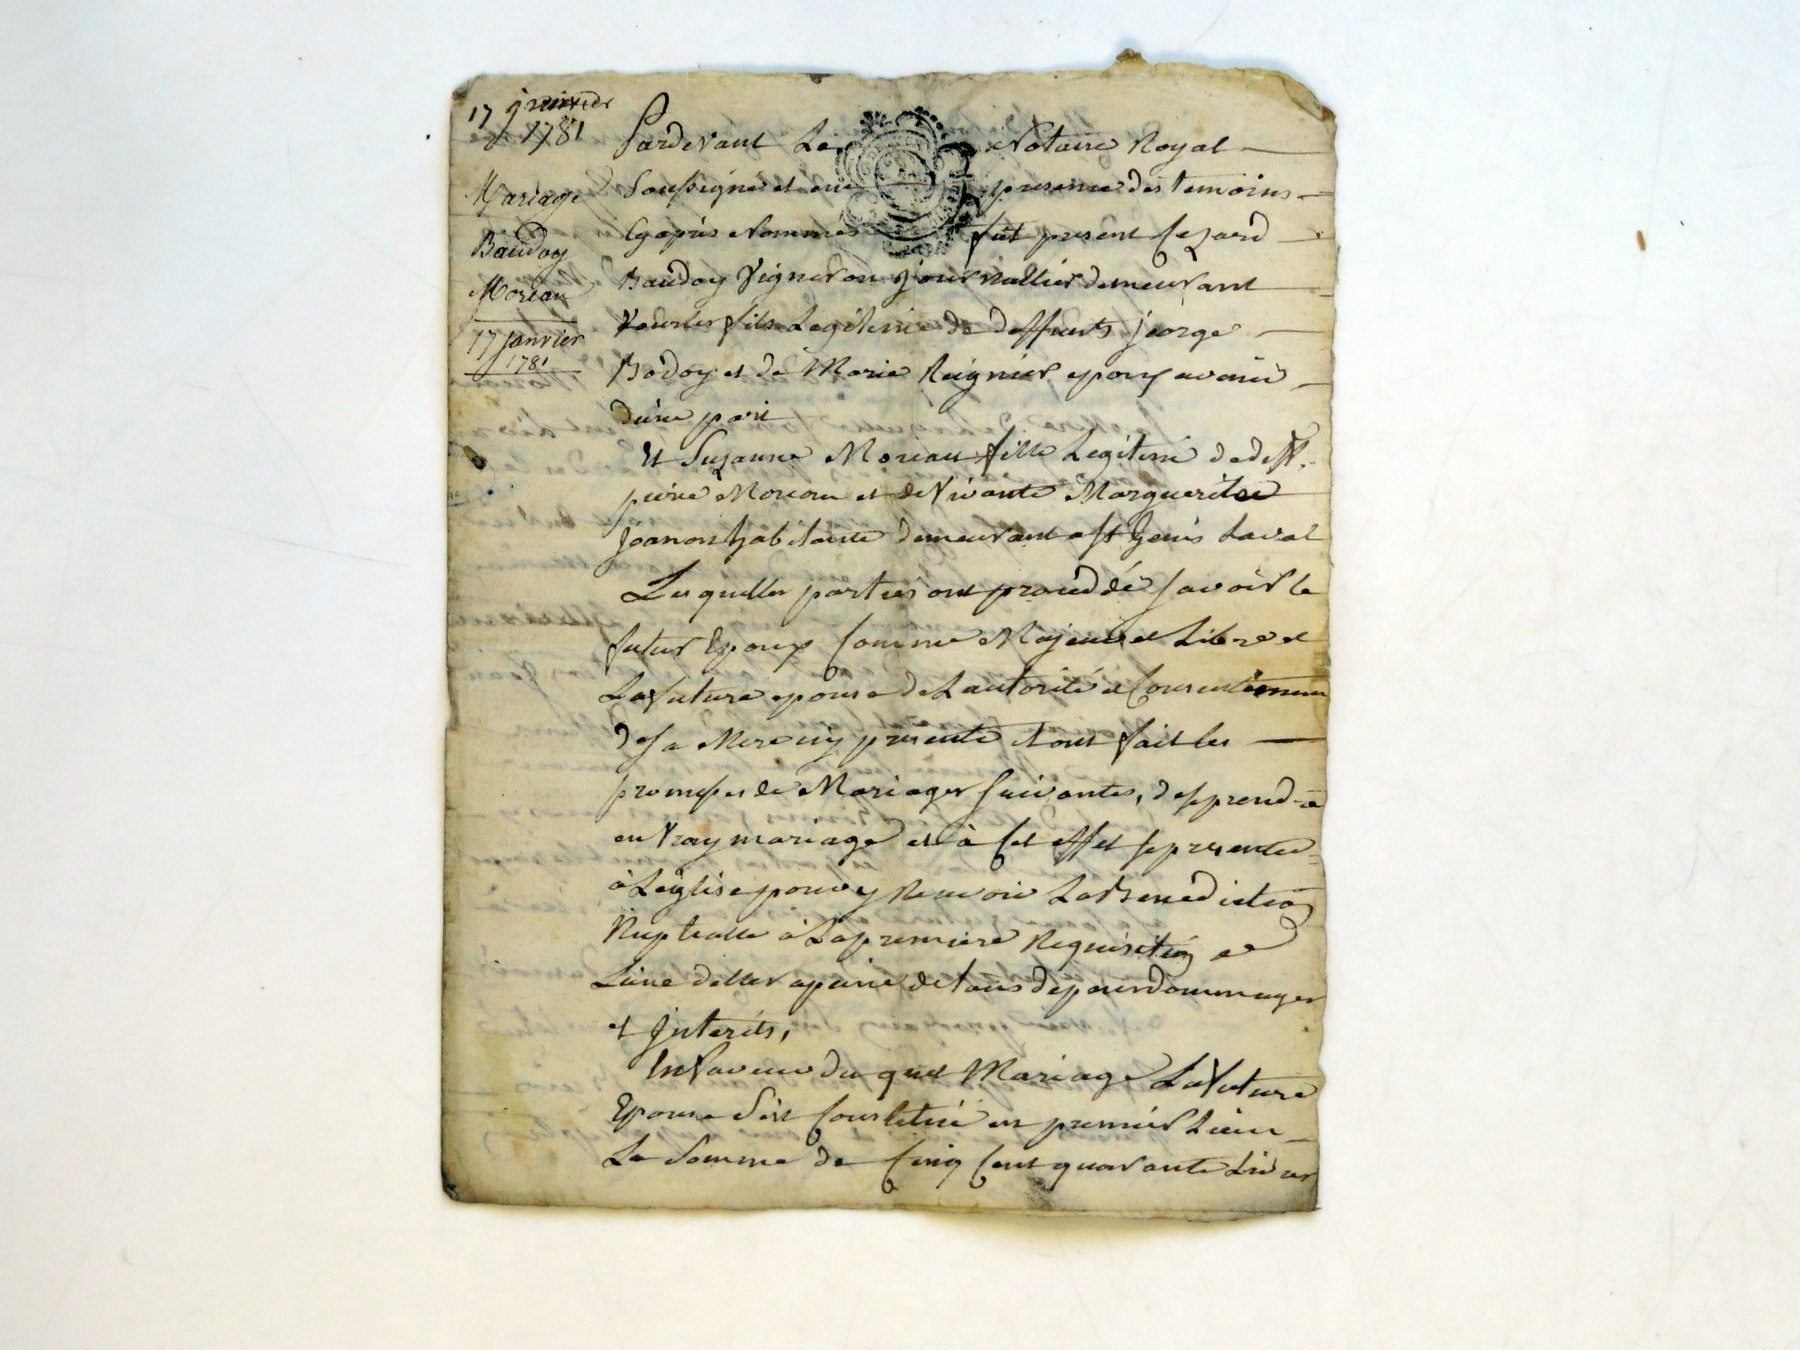 17 janvier
1781
Mariage
Baudoy
Moreau
17 janvier
1781
Pardevant Le Notaire Royal
Soussigné et en presence des temoins
Cyaprès Nommés fut present Cezard
Baudoy Vigneron journallier demeurant
fils Legitime de deffunts jeorge
Bodoy et de Marie Reignier epoux avenir
dune part
Et Suzanne Moreau fille Legitime de deff.
pierre Moreau et de Vivante Marguerite
joanon habitante demeurant a St Genis Laval
Lesquelles parties ont procédé savoir le
futur Epoux Comme Majeur et Libre et
La future epouse de Lautorité et Consentement
de sa Mere icy presente et ont fait les
promesses de Mariages suivantes, de se prendre
en Vray mariage et à Cet effet se presenter
à Léglise pour y Recevoir La Benediction
Nuptialle à La premiere Requisition de
Lune delles a peine de tous depens dommages
et jnterêts,
En faveur du quel Mariage La future
Epouse Sest Constitué en premier Lieu
La Somme de Cinq Cent quarante Livres